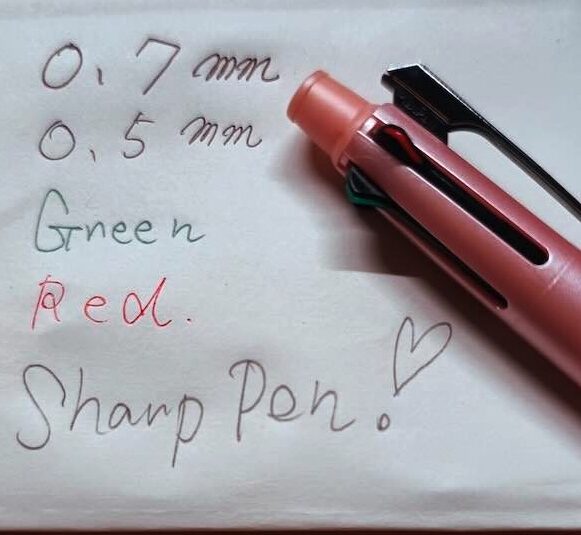 0.7 mm
0.5 mm
Green
Red.
Sharp Pen!♡